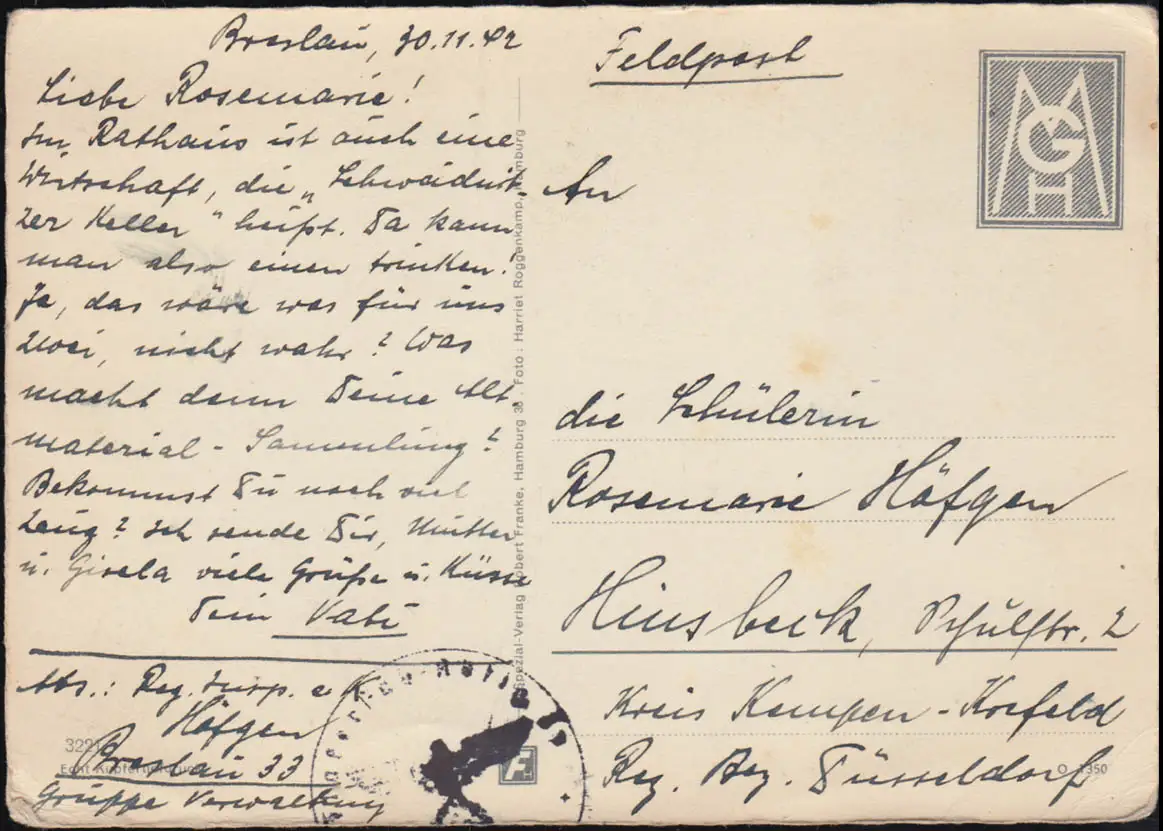 Breslau, 30.11.42
Liebe Rosemarie!
Im Rathaus ist auch eine
Wirtschaft, die „Schweidnit-
zer Keller" heißt. Da kann
man also einen trinken.
Ja, das wäre was für uns
zwei, nicht wahr? Was
macht denn Deine Alt-
material-Sammlung?
Bekommst Du noch viel
Zeug? Ich sende Dir, Mutter
u. Gisela viele Grüße u. Küsse
Dein Vati
Abs.: Reg. Insp. a K
Höfgen
Breslau 33
Gruppe Verwaltung
3221
Echt Kupfertiefdruck
Spezial-Verlag Robert Franke, Hamburg 36. Foto: Harriet Roggenkamp, Hamburg
Feldpost
MGH
An
die Schülerin
Rosemarie Höfgen
Hinsbeck, Schulstr. 2
Kreis Kempen-Krefeld
Reg. Bez. Düsseldorf
O 1350